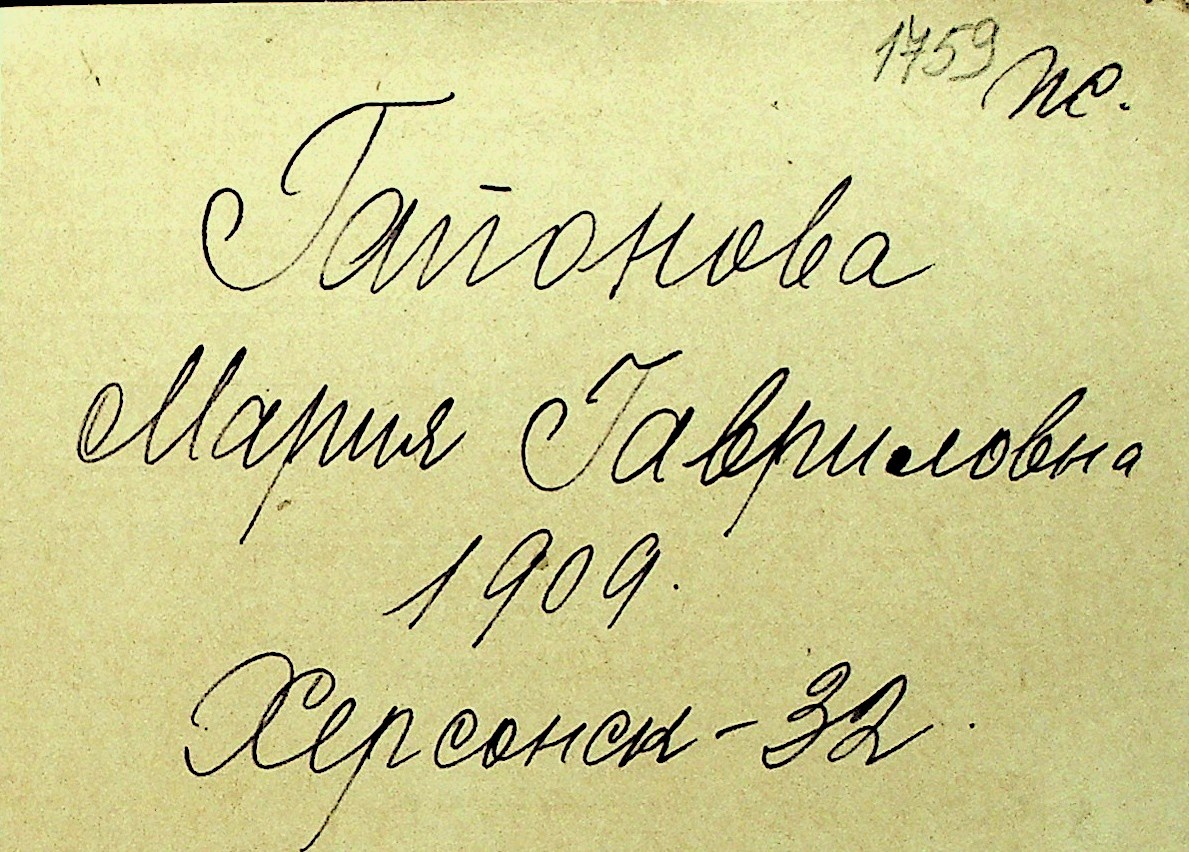 1759 пс.
Гапонова
Мария Гавриловна
1909.
Херсонск-32.